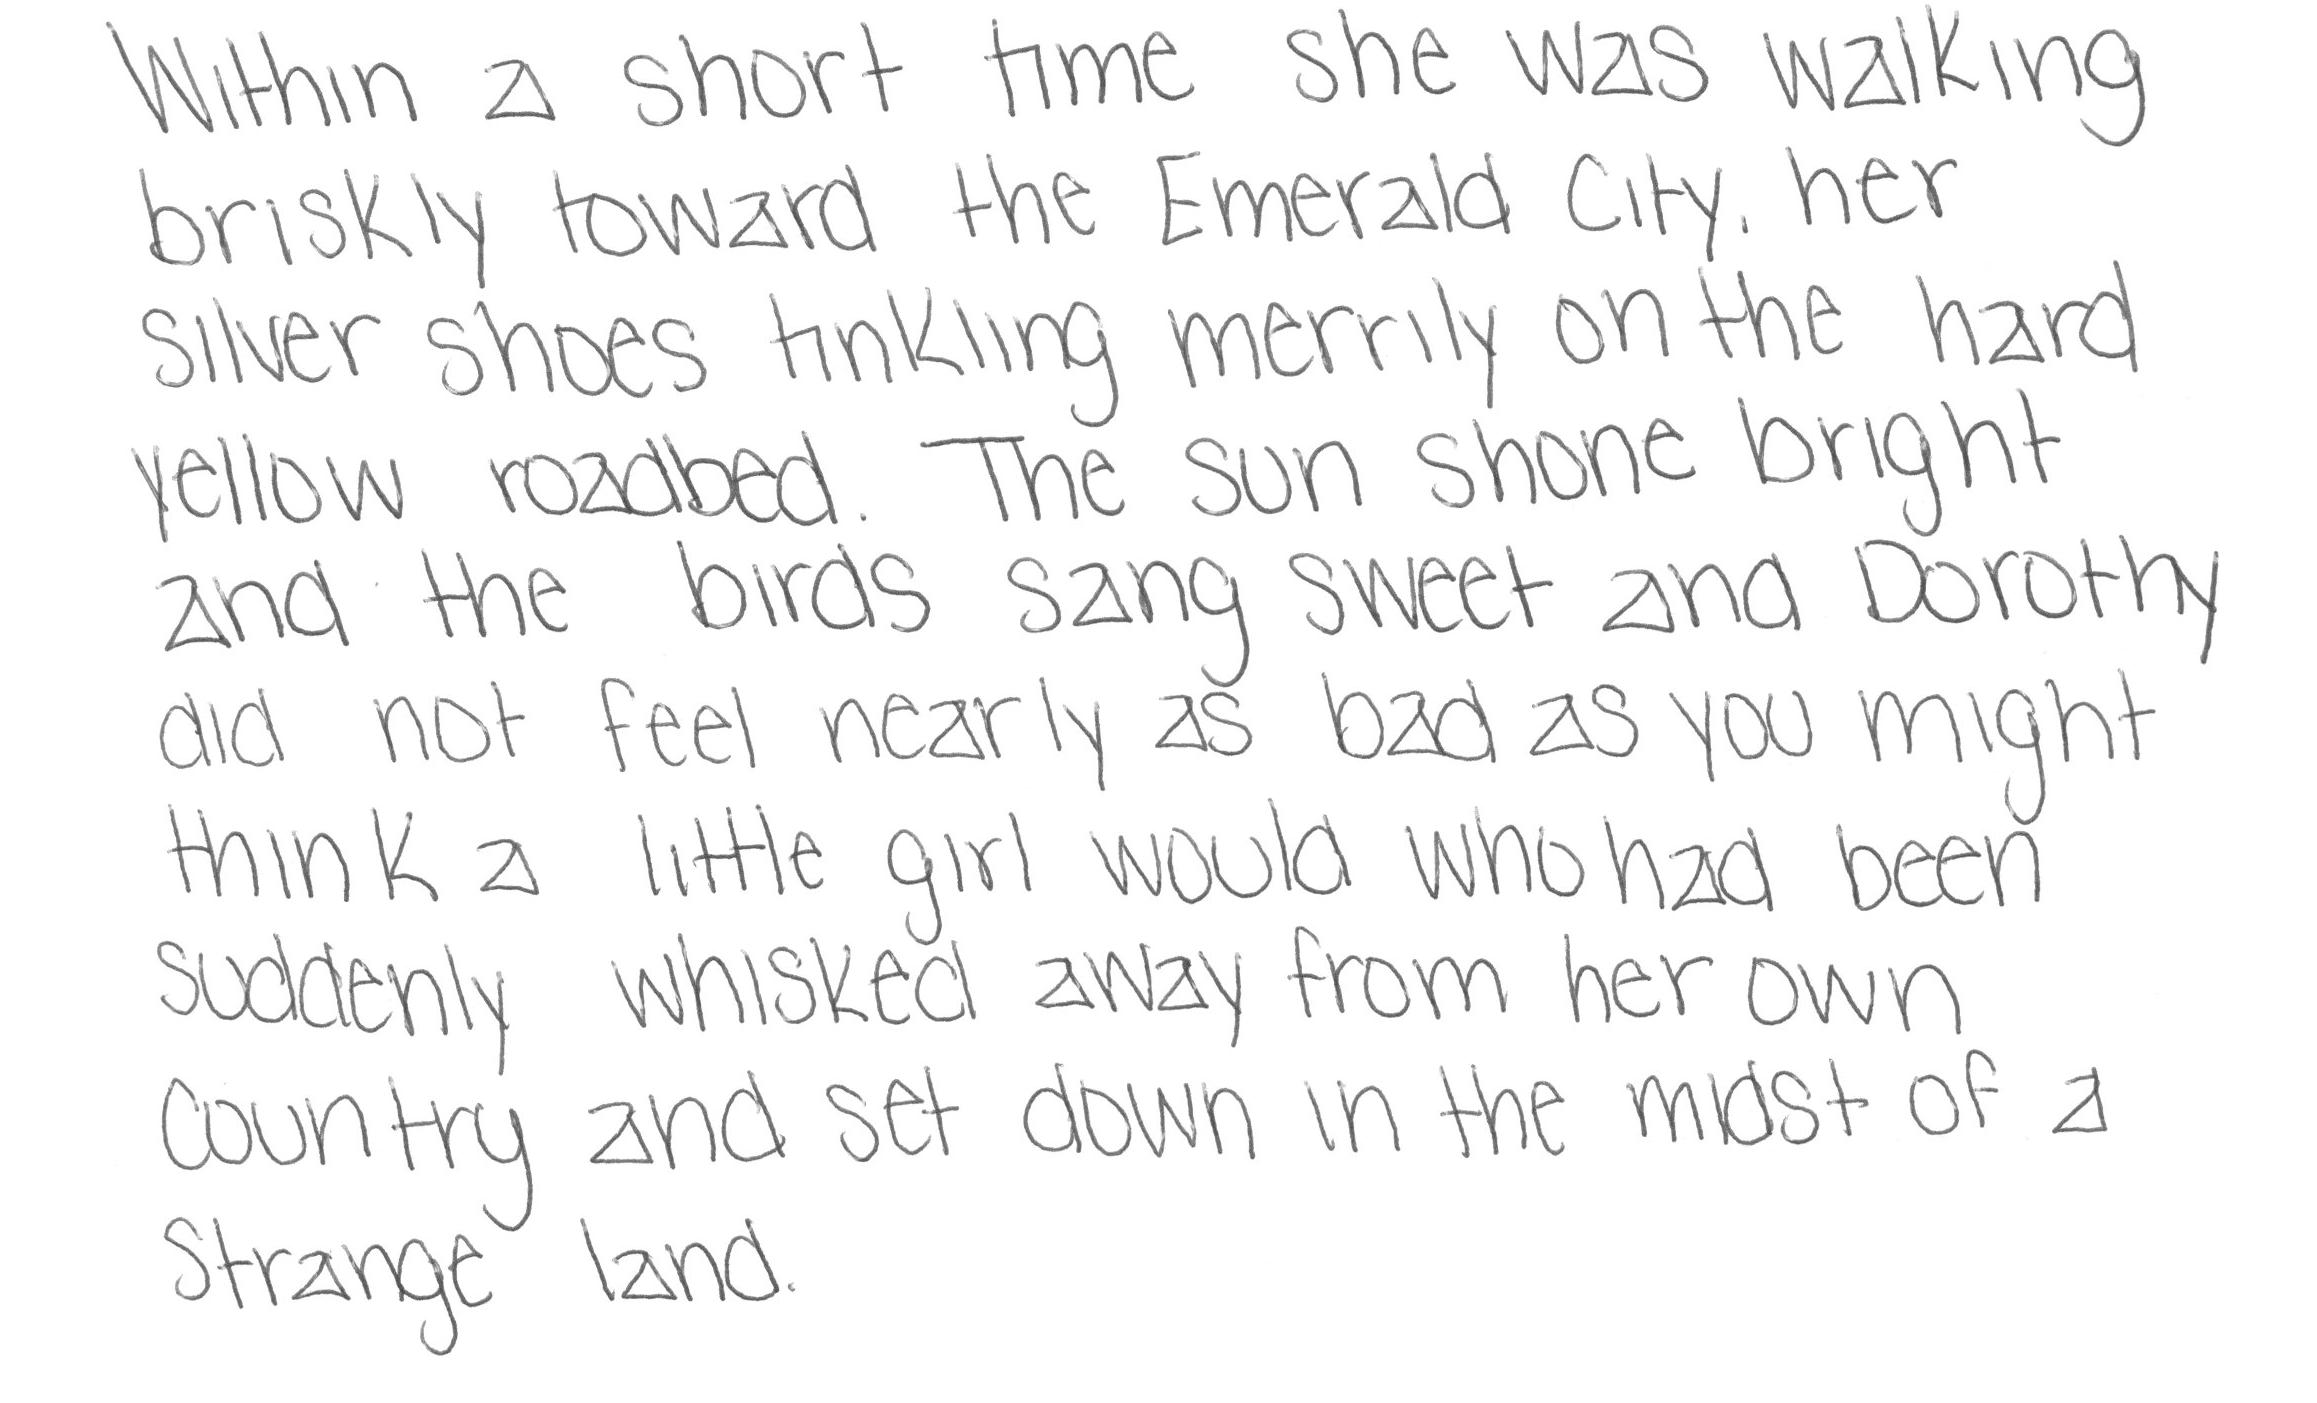 Within a short time she was walking
briskly toward the Emerald City, her
silver shoes tinkling merrily on the hard
yellow roadbed. The sun shone bright
and the birds sang sweet and Dorothy
did not feel nearly as bad as you might
think a little girl would who had been
suddenly whisked away from her own
country and set down in the midst of a
strange land.